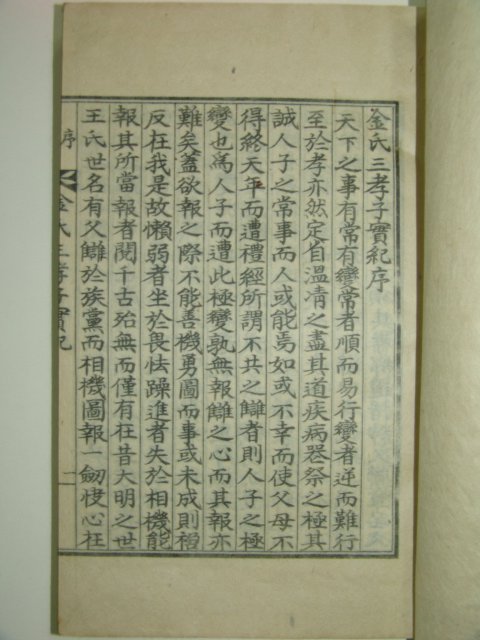 金氏三孝子實紀序
天下之事有常有變常者順而易行變者逆而難行
至於孝亦然定省溫凊之盡其道疾病喪祭之極其
誠人子之常事而人或能焉如或不幸而使父母不
得終天年而遭禮經所謂不共之讎者則人子之極
變也爲人子而遭此極變孰無報讎之心而其報亦
難矣蓋欲報之際不能善機勇圖而事或未成則禍
反在我是故懶弱者坐於畏怯躁進者失於相機能
報其所當報者閱千古殆無而僅有在昔大明之世
王氏世名有父讎於族黨而相機圖報一劒快心在
金氏三孝子實紀
序
一